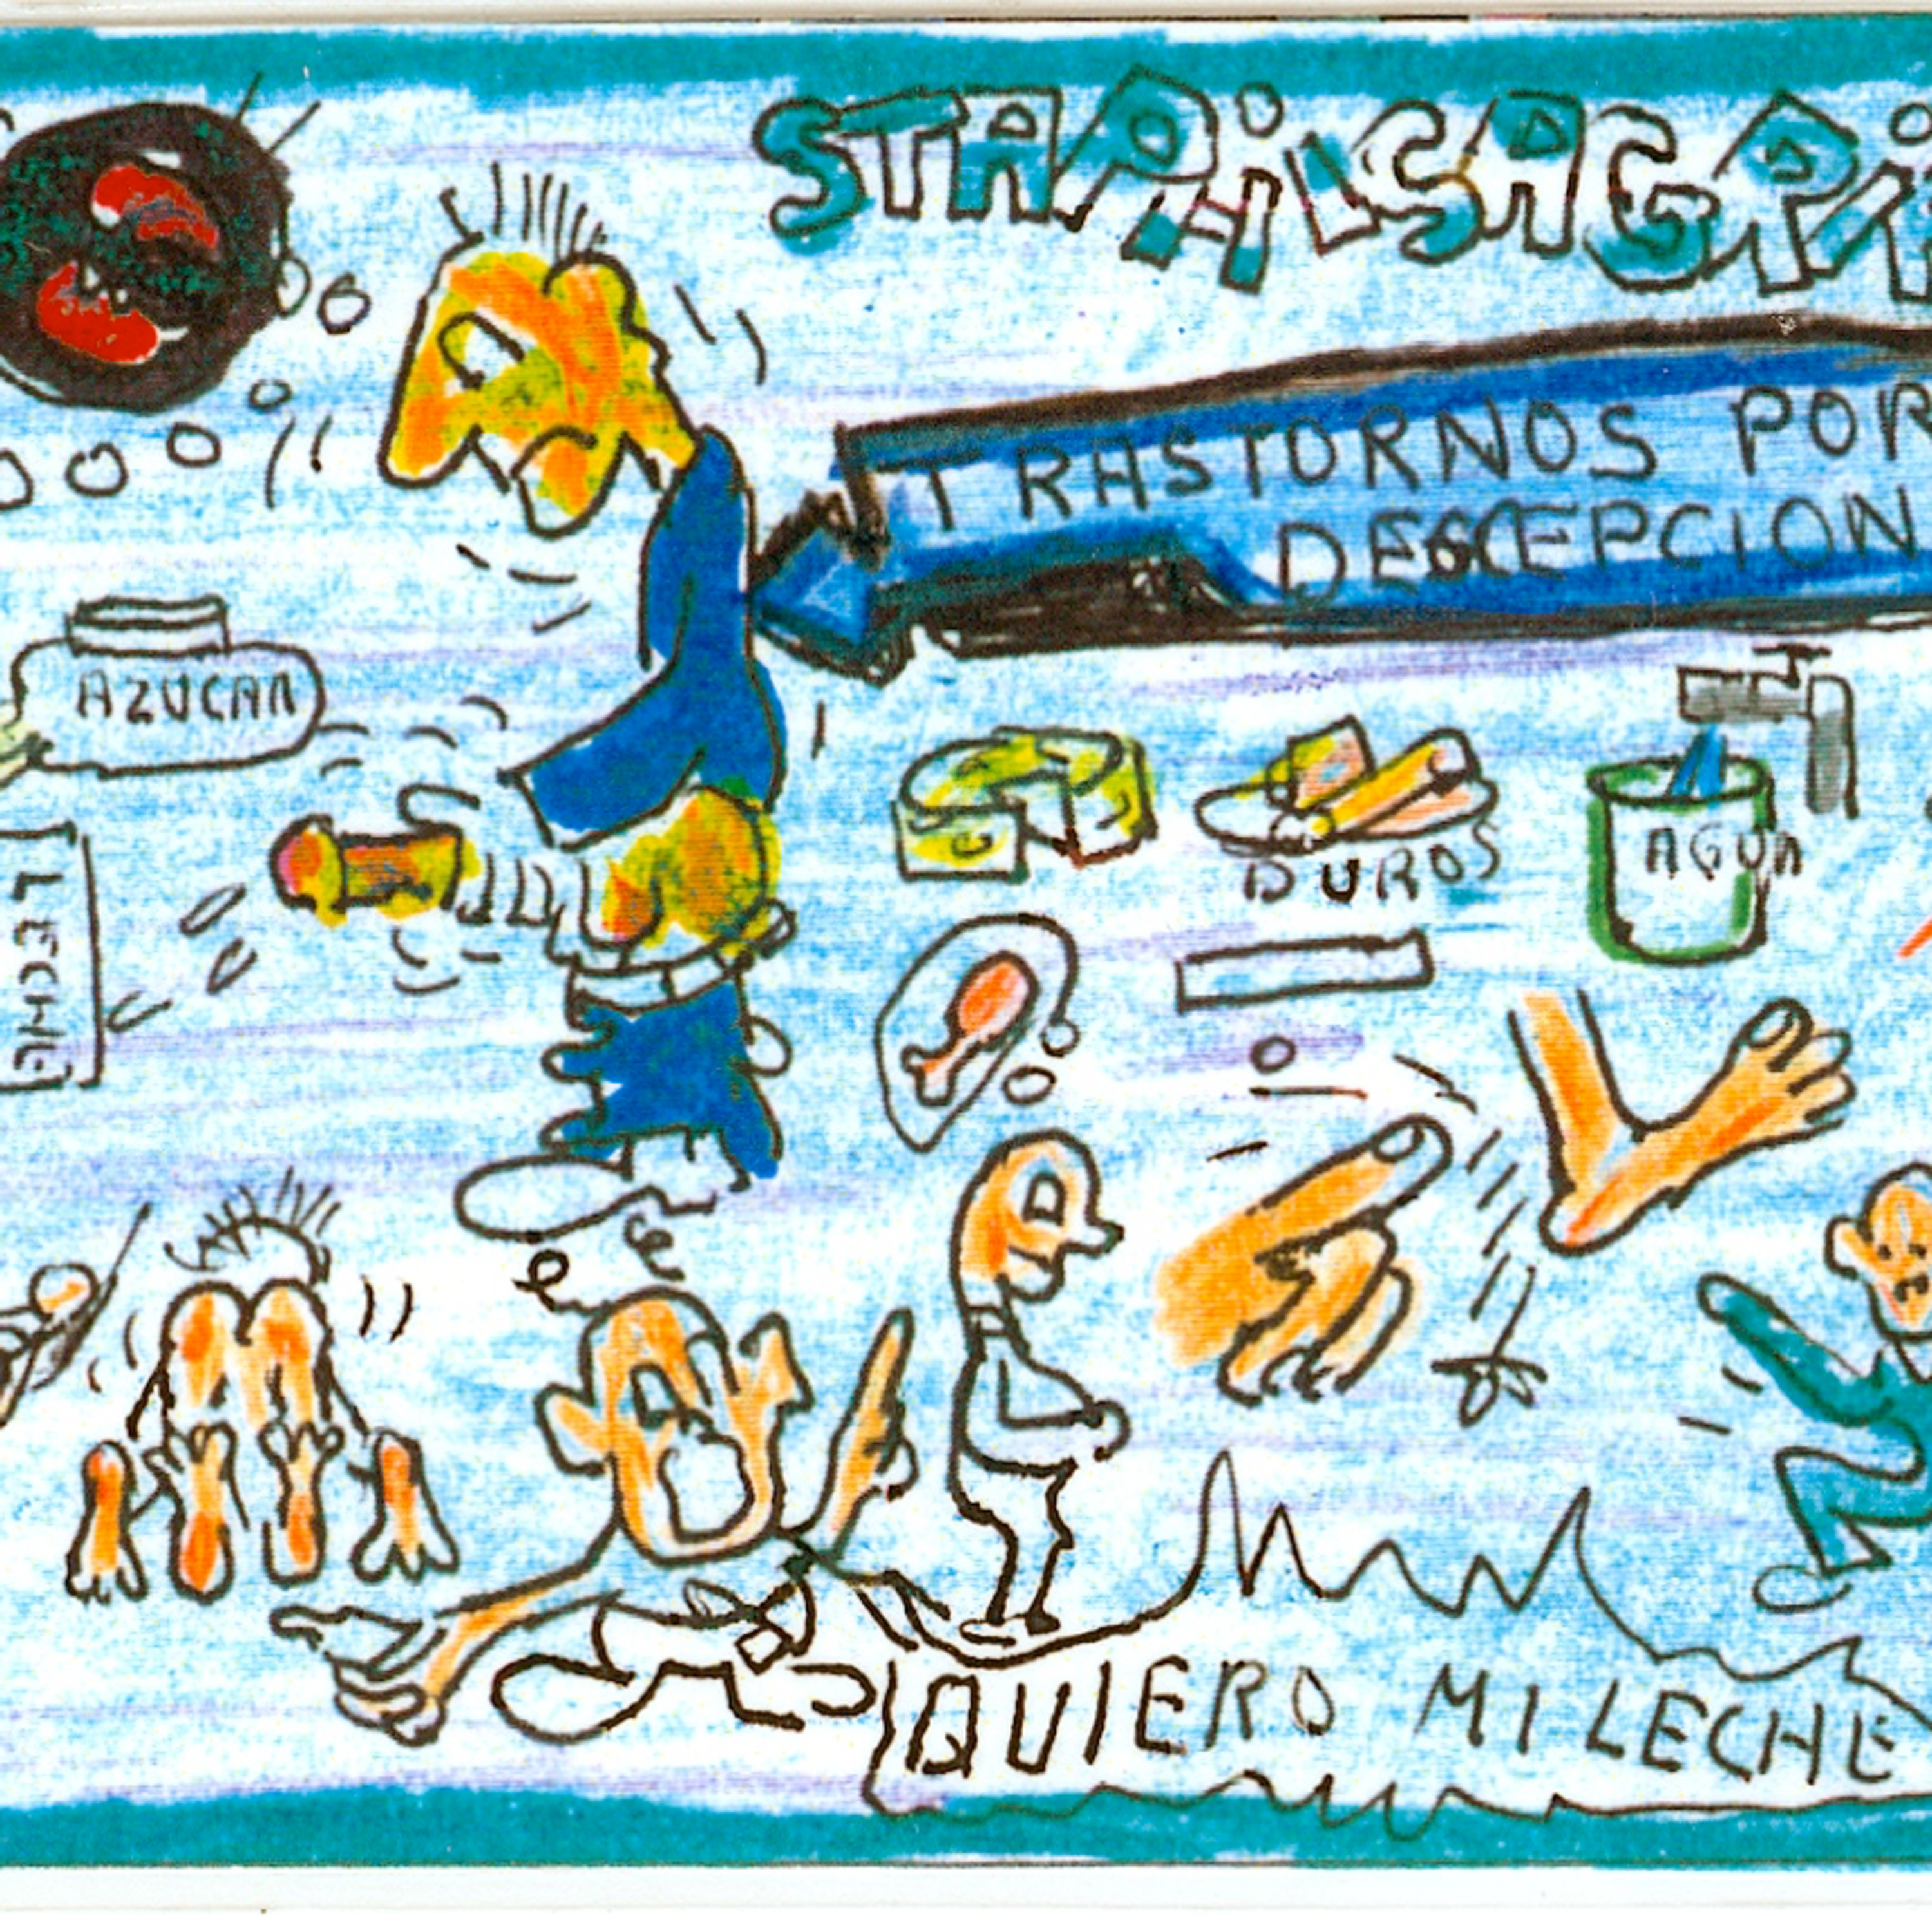 STAPHiLSAGRi
TRASTORNOS POR
DESCEPCION
AZUCAR
DUROS
AGUA
LECHE
QUIERO MI LECHE